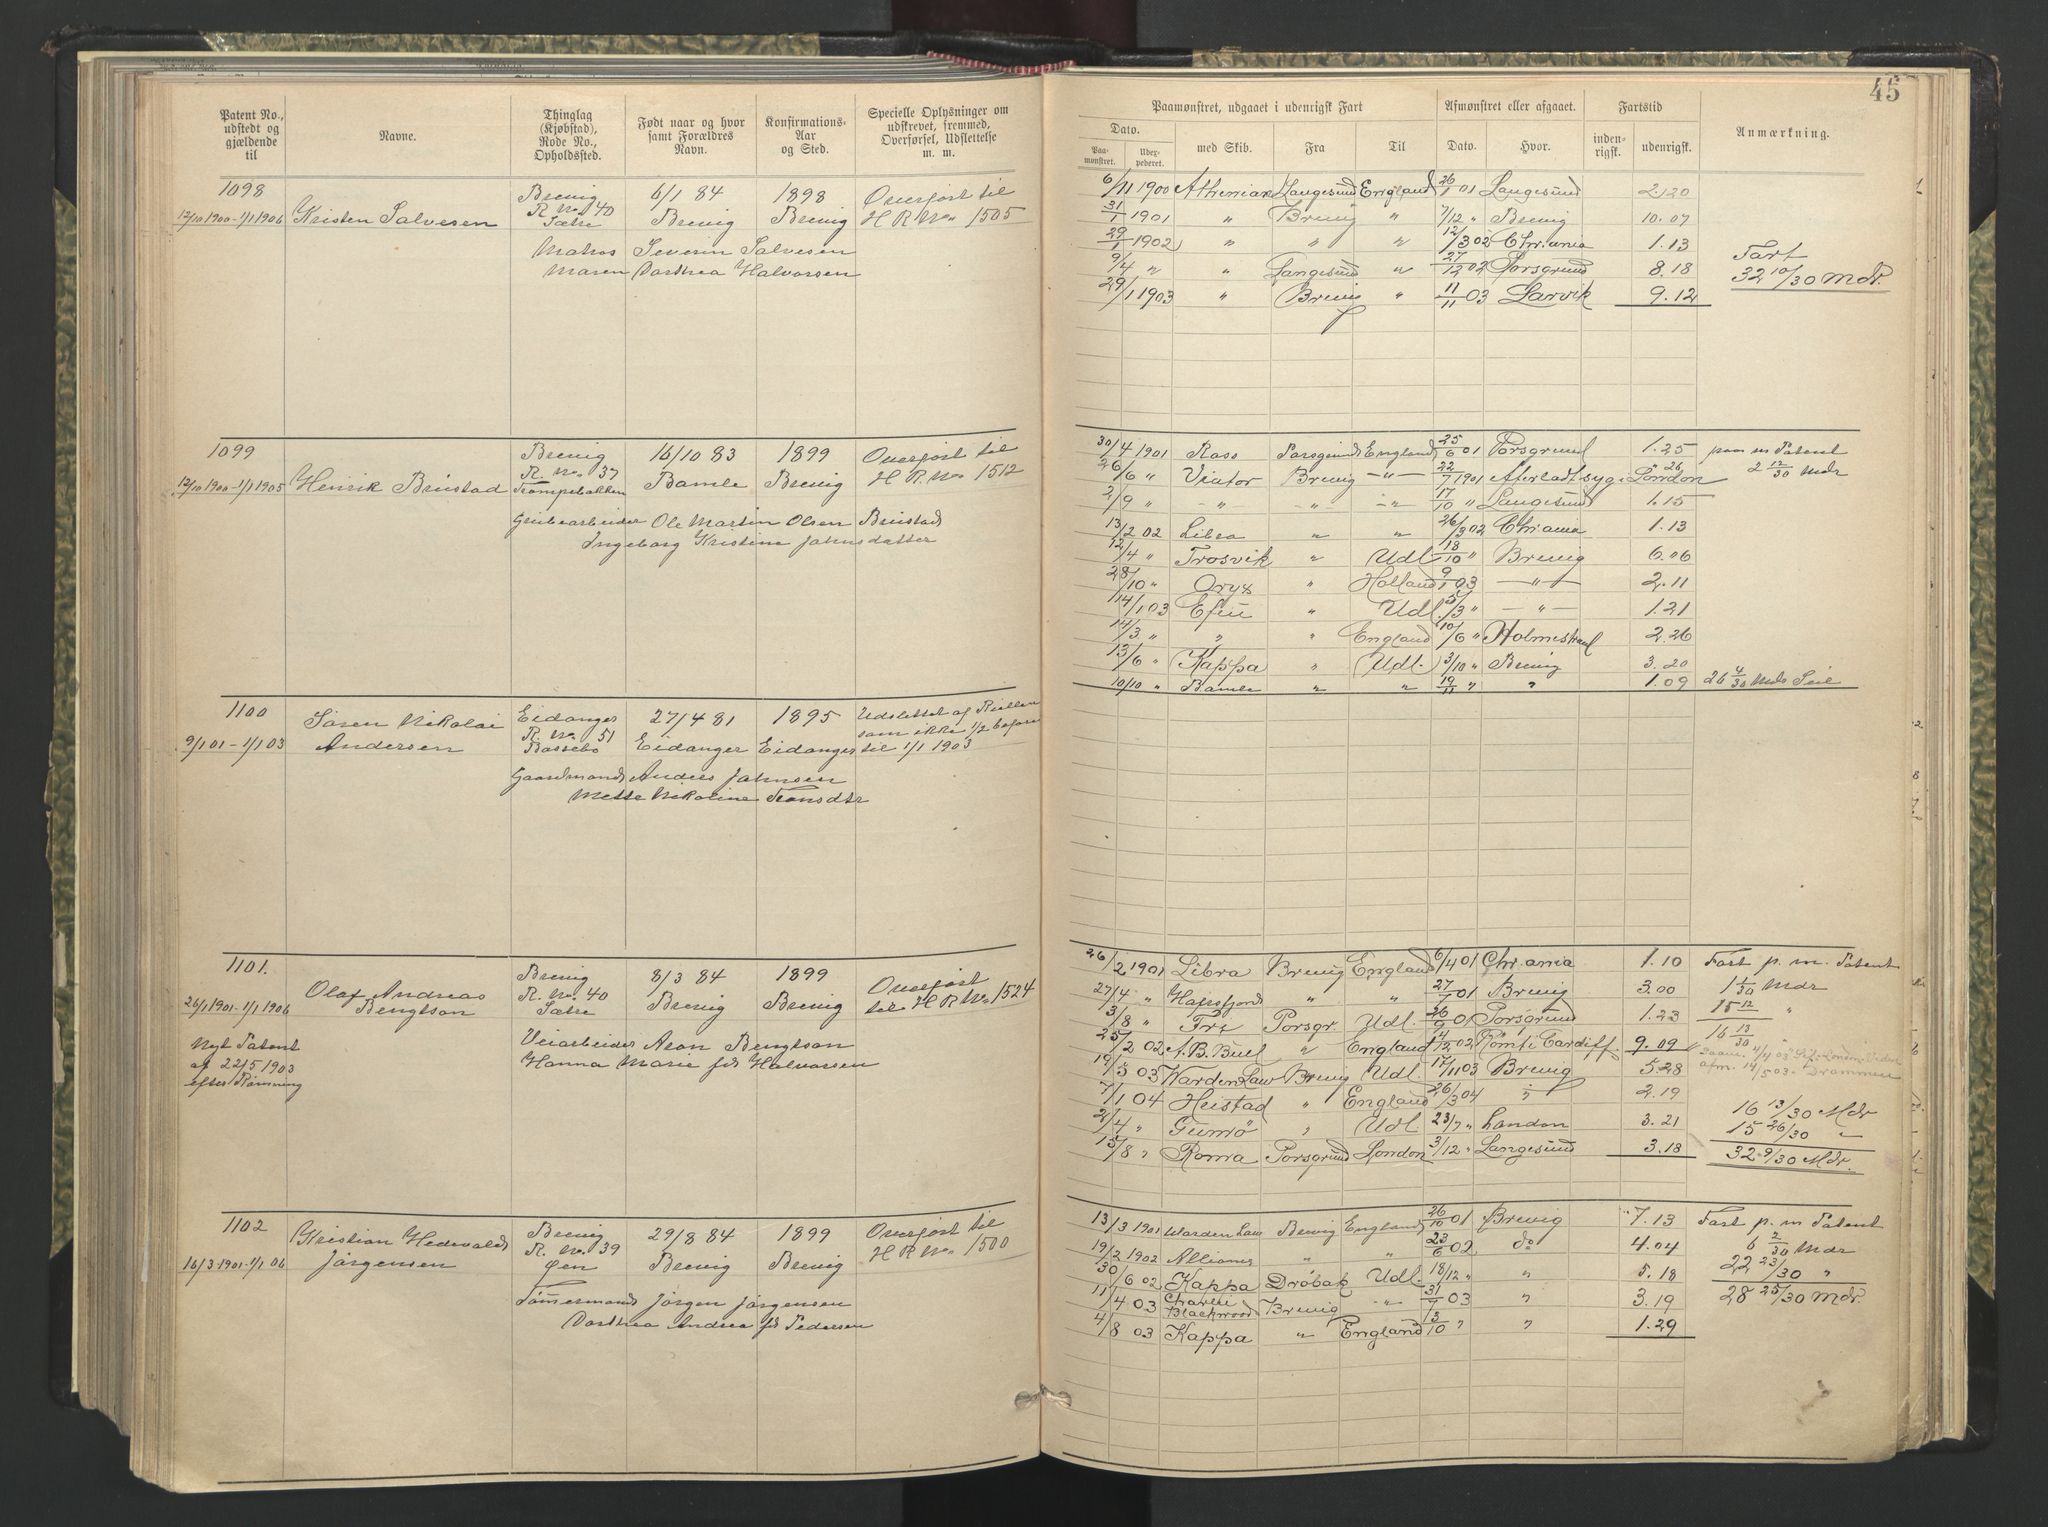 45
Patent No., udstedt og gjældende til
Navne.
Thinglag (Kjøbstad), Rode No., Opholdssted.
Født naar og hvor samt Forældres Navn.
Konfirmations-Aar og Sted.
Specielle Oplysninger om udskrevet, fremmed, Overførsel, Udslettelse m. m.
Paamønstret, udgaaet i udenrigsk Fart
Afmønstret eller afgaaet.
Fartstid
Anmærkning.
Dato.
Paa-mønstret.
Udex-pederet.
med Skib.
Fra
Til
Dato.
Hvor.
inden-rigsk.
udenrigsk.
1098
12/10 1900-1/1 1906
Kristen Salvesen
Brevig
R. No. 40
Sætre
6/1 84
Brevig
1898
Brevig
Overført til
H R No. 1505
Matros Severin Salvesen
Maren Dorthea Halvorsen
6/11 1900 Athenian Langesund England 26/1 01 Langesund 2.20
31/1 1901 " Brevig " 7/12 " Brevig 10.07
29/1 1902 " " " 12/3 02 Chr.ania 1.13
9/4 " " Langesund " 27/12 02 Porsgrund 8.18
29/1 1903 " Brevig " 11/11 03 Larvik 9.12
Fart
32 10/30 Mdr.
1099
12/10 1900-1/1 1905
Henrik Brustad
Brevig
R. No. 37
Trompebakken
16/10 83
Bamle
1899
Brevig
Overført til
H R No. 1512
Grubearbeider Ole Martin Olsen Brustad
Ingeborg Kristine Johnsdatter
30/4 1901 Ross Porsgrund England 25/6 01 Porsgrund 1.25
26/6 " Viator Brevig -"- 22/7 1901 Efterladt syg i London " 26
2/9 " -"- -"- -"- 17/10 " Langesund 1.15
13/2 02 Libra " " 26/3 02 Chr.ania 1.13
12/4 " Trosvik " Udl. 18/10 " Brevig 6.06
28/10 " Oryx " Holland 9/1 03 -"- 2.11
14/1 03 Efeu " Udl. 5/3 " -"- 1.21
14/3 " " " England 10/6 " Holmestrand 2.26
13/6 " Kappa " Udl. 3/10 " Brevig 3.20
10/10 " Bamle " " 19/11 " " 1.09
paa m Patent
2 12/30 Mdr
26 4/30 Mdr Seil
1100
9/1 01 - 1/1 03
Søren Nikolai
Andersen
Eidanger
R. No. 51
Bassebo
27/4 81
Eidanger
1895
Eidanger
Udslettet af Rullen
som ikke 1/2 befaren
til 1/1 1903
Gaardmand Anders Johnsen
Mette Nikoline Tronsdtr
1101.
26/1 1901-1/1 1906
Nyt Patent
af 22/5 1903
efter Rømning
Olaf Andreas
Bengtson
Brevig
R. No. 40
Sætre
8/3 84
Brevig
1899
Brevig
Overført
til H R No. 1524
Veiarbeider Aron Bengtson
Hanna Marie fds Halvorsen
26/2 1901 Libra Brevig England 6/4 01 Chr.ania 1.10
27/4 " " " 27/7 01 Brevig 3.00
3/8 " Porsgr. Udl. 26/9 01 Porsgrund 1.23
25/2 02 A. B. Bull " England 4/12 02 Rømt i Cardiff 9.09
19/5 03 Warden Law Brevig Udl. 17/11 03 Brevig 5.28
7/1 04 Heistad " England 26/3 04 " 2.19
2/4 " Gumø " Udl. 23/7 " London 3.21
15/8 " Roma Porsgrund London 3/12 " Langesund 3.18
Fart p. m. Patent
1 1/30 Mdr
15 12/30 "
16 13/30
afm. 14/5 03 Drammen
16 13/30 Mdr
15 26/30 "
32 9/30 Mdr.
1102
16/3 1901-1/1 06
Kristian Hedevald
Jørgensen
Brevig
R. No. 39
Øen
29/8 84
Brevig
1899
Brevig
Overført til
H R No. 1500
Tømmermand Jørgen Jørgensen
Dorthea Andrea fds Pedersen
13/3 1901 Warden Law Brevig England 26/10 01 Brevig 7.13
19/2 1902 Alliance " " 23/6 02 do 4.04
30/6 02 Kappa Drøbak Udl. 18/12 " " 5.18
11/4 03 Charlie Blackwood Brevig -"- 31/7 03 " 3.19
4/8 03 Kappa " England 13/10 " " 1.29
Fart p. m Patent
6 2/30 Mdr
22 23/30 "
28 25/30 Mdr.